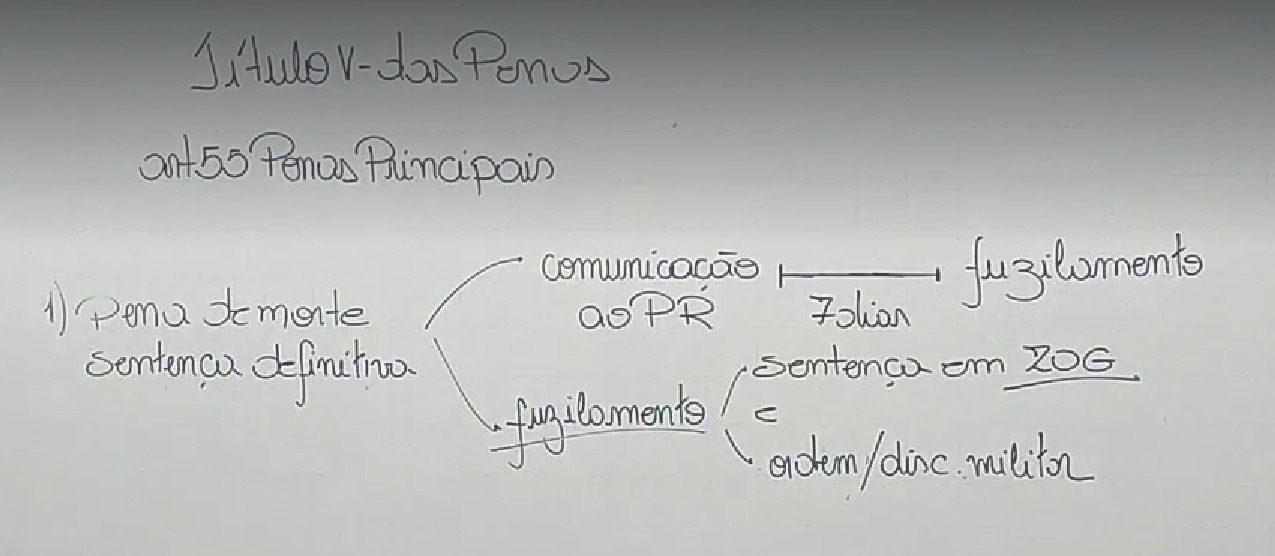 Título V - das Penas
art 55 Penas Principais
1) Pena de morte
sentença definitiva
comunicação
ao PR
7 dias
fuzilamento
fuzilamento
sentença em ZOG
e
ordem/disc. militar